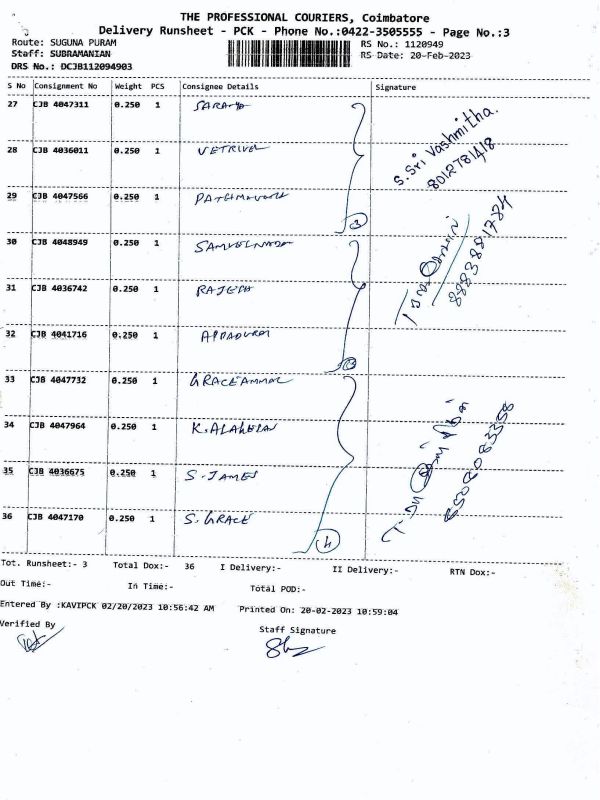 THE PROFESSIONAL COURIERS, Coimbatore
Delivery Runsheet - PCK - Phone No.:0422-3505555 - Page No.:3
Route: SUGUNA PURAM RS No.: 1120949
Staff: SUBRAMANIAN RS Date: 20-Feb-2023
DRS No.: DCJB112094903
S No Consignment No Weight PCS Consignee Details Signature
27 CJB 4047311 0.250 1
28 CJB 4036011 0.250 1 VETRIVEL
S.Sri Vashmitha.
8012781418
29 CJB 4047566 0.250 1
3
30 CJB 4048949 0.250 1
8883881784
31 CJB 4036742 0.250 1 RAJESH
32 CJB 4041716 0.250 1 APPADURAI
3
33 CJB 4047732 0.250 1 GRACEAMMAL
34 CJB 4047964 0.250 1 K.
35 CJB 4036675 0.250 1 S. JAMES
36 CJB 4047170 0.250 1 S. GRACE
4
Tot. Runsheet:- 3 Total Dox:- 36 I Delivery:- II Delivery:- RTN Dox:-
Out Time:- In Time:- Total POD:-
Entered By :KAVIPCK 02/20/2023 10:56:42 AM Printed On: 20-02-2023 10:59:04
Verified By Staff Signature